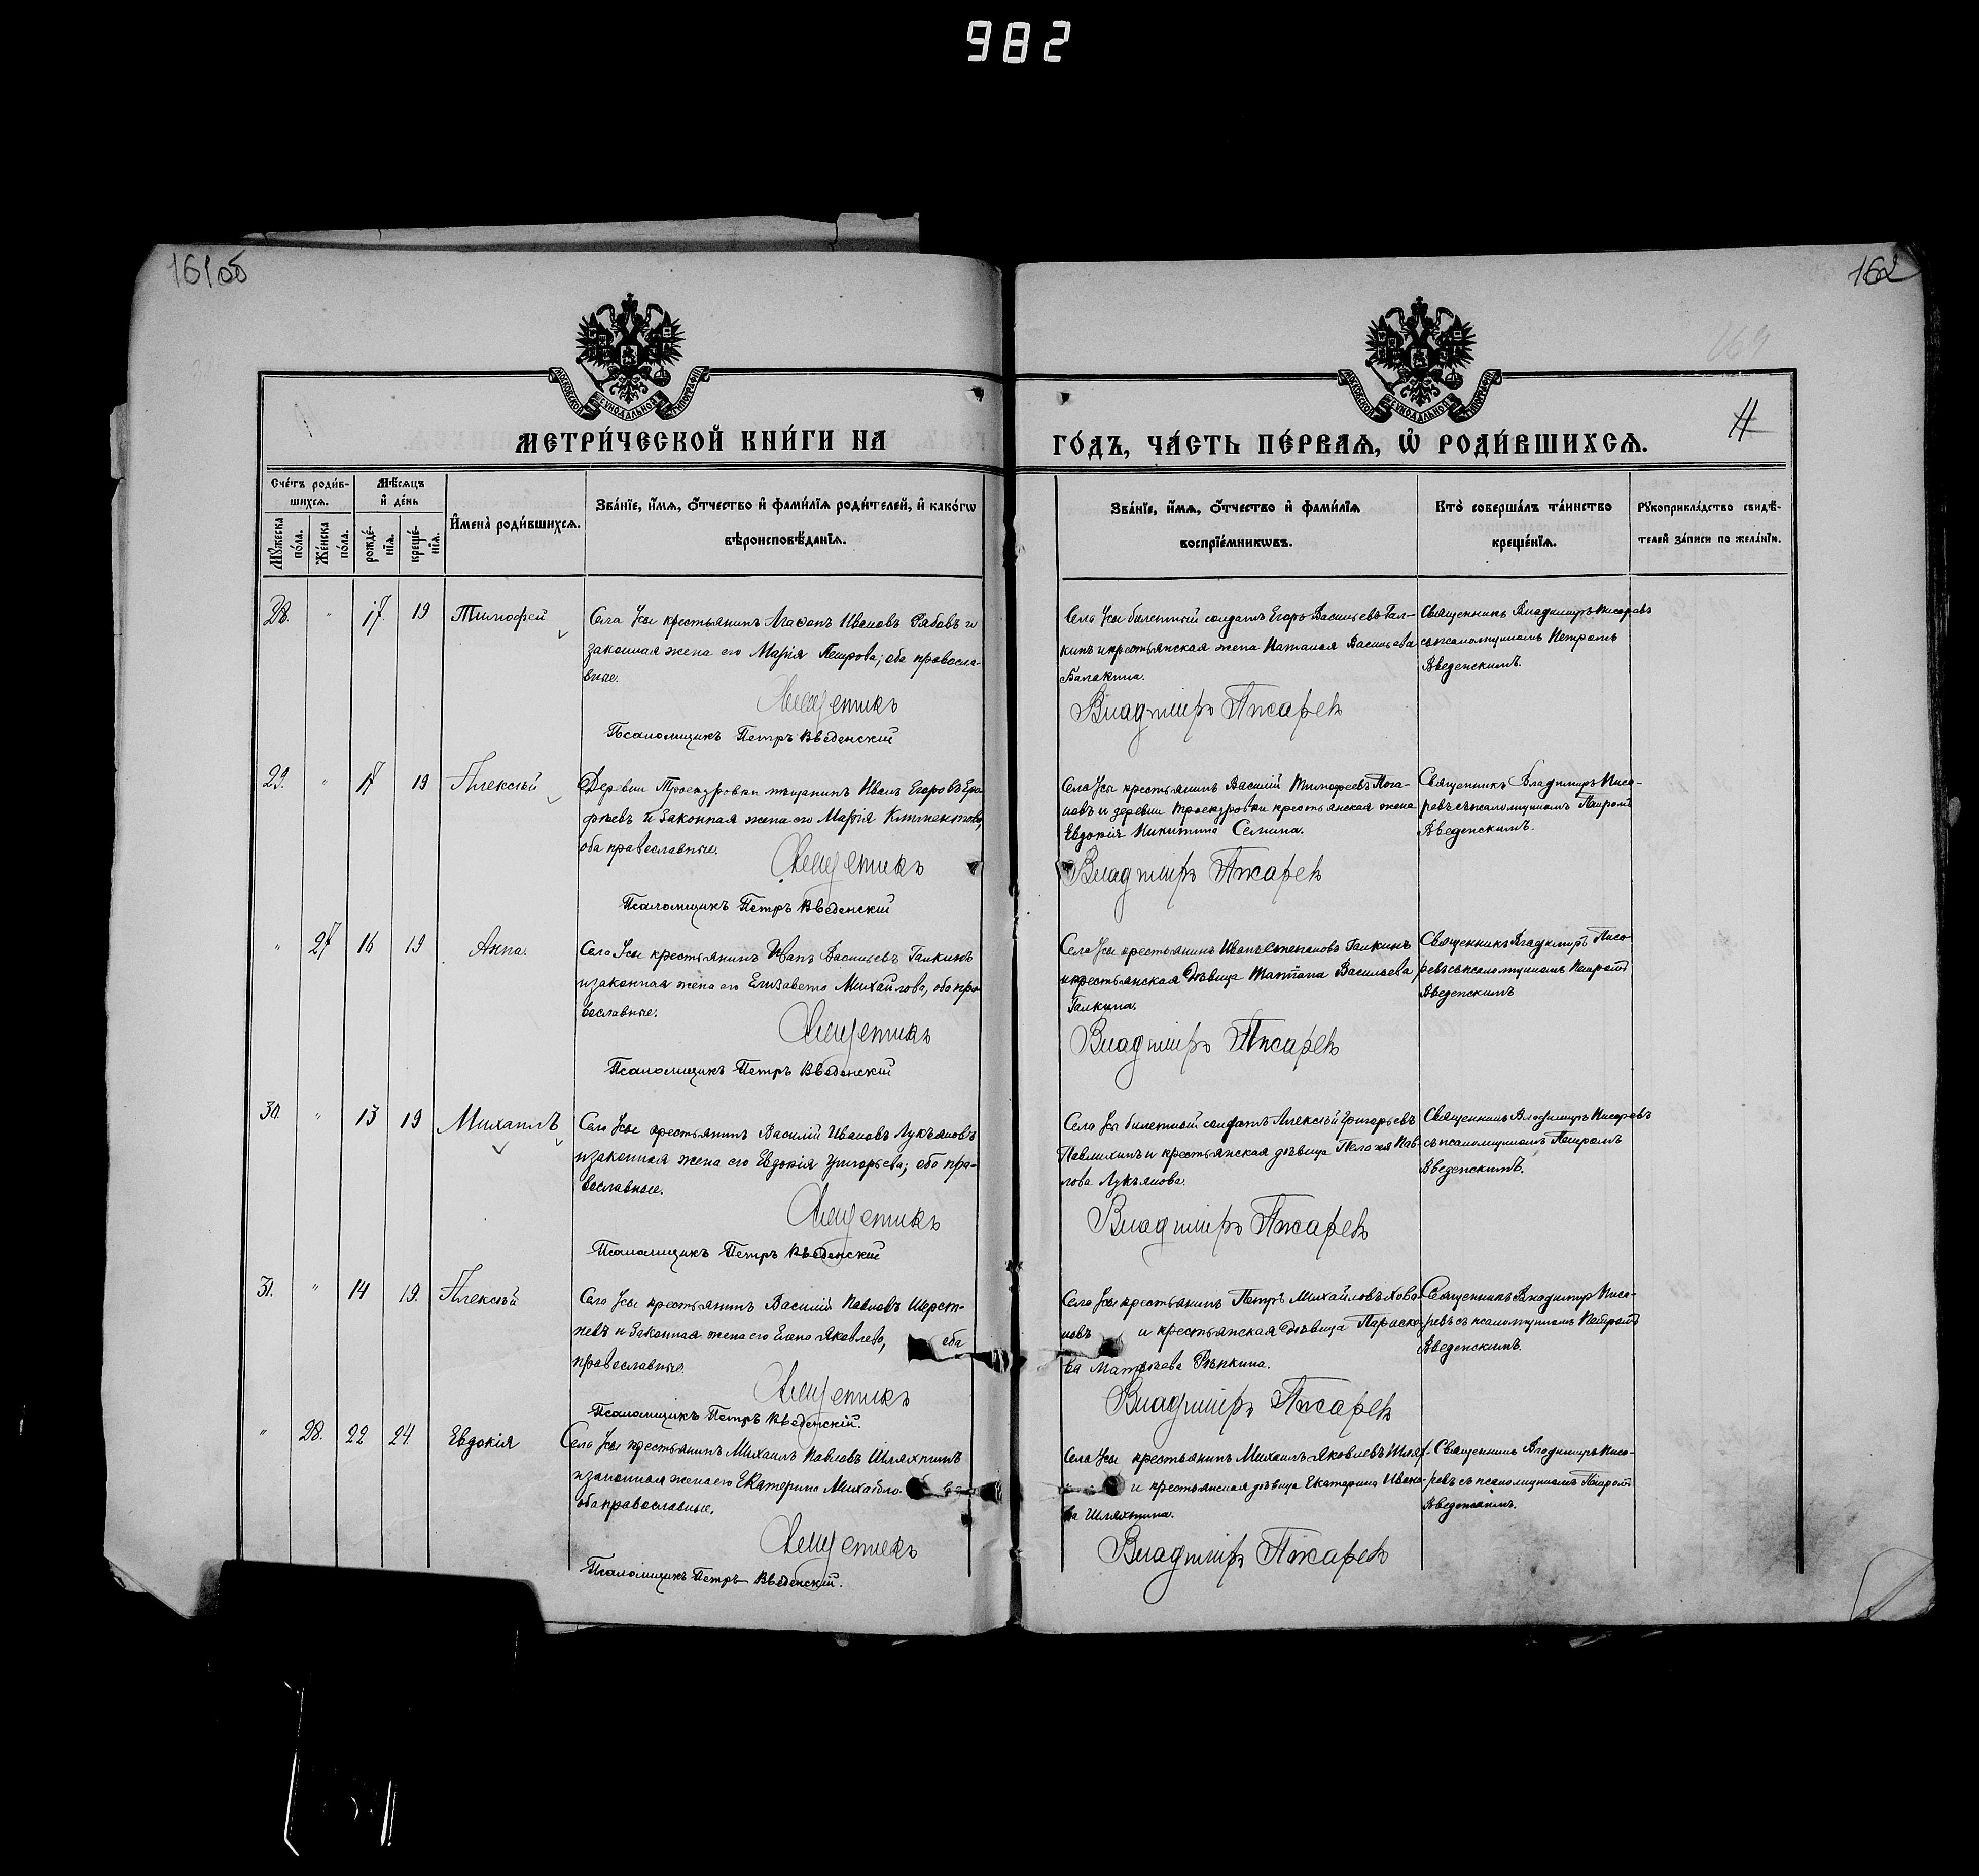 982
161об
162
169
МОСКОВСКОЙ СѴНОДАЛЬНОЙ ТИПОГРАФІИ
МОСКОВСКОЙ СѴНОДАЛЬНОЙ ТИПОГРАФІИ
МЕТРИ́ЧЕСКОЙ КНИ́ГИ НА
ГО́ДЪ, ЧА́СТЬ ПЕ́РВАѦ, Ѡ҆ РОДИ́ВШИХСѦ.
Сче́тъ роди́в-
шихсѧ.
Мѣ́сѧцъ
и҆ де́нь
Мꙋ́жеска
по́ла.
Же́нска
по́ла.
рожде́-
нїѧ.
креще́-
нїѧ.
И҆мена̀ роди́вшихсѧ.
Зва́нїе, и҆́мѧ, ѻ҆́тчество и҆ фами́лїѧ роди́телей, и҆ како́гѡ
вѣроисповѣ́данїѧ.
Зва́нїе, и҆́мѧ, ѻ҆́тчество и҆ фами́лїѧ
воспрїе́мникѡвъ.
Кто̀ соверша́лъ та́инство
креще́нїѧ.
Рꙋкоприкла́дство свидѣ́-
телей за́писи по жела́нїю.
28. " 17. 19 Тимофей
Села Усы крестьянинъ Агафонъ Ивановъ Рябовъ и
законная жена его Марія Петрова; оба правосла-
вные.
Священникъ
Псаломщикъ Петръ Введенскій
Села Усы билетный солдатъ Егоръ Васильевъ Гал-
кинъ и крестьянская жена Наталья Васильева
Владиміръ Писаревъ
Священникъ Владиміръ Писаревъ
съ псаломщикомъ Петромъ
Введенскимъ.
29. " 17 19 Алексѣй
Деревни Проскуровки мѣщанинъ Иванъ Егоровъ Ера-
фѣевъ и законная жена его Марія Климентова,
оба православные.
Священникъ
Псаломщикъ Петръ Введенскій
Села Усы крестьянинъ Василій Тимофеевъ Пота-
повъ и деревни Проскуровки крестьянская жена
Евдокія Никитина Семина.
Владиміръ Писаревъ
Священникъ Владиміръ Писа-
ревъ съ псаломщикомъ Петромъ
Введенскимъ.
" 27 16 19 Анна.
Села Усы крестьянинъ Иванъ Васильевъ Галкинъ
и законная жена его Елизавета Михайлова, оба пра-
вославные.
Священникъ
Псаломщикъ Петръ Введенскій
Села Усы крестьянинъ Иванъ Степановъ Галкинъ
и крестьянская дѣвица Татіана Васильева
Галкина.
Владиміръ Писаревъ
Священникъ Владиміръ Писа-
ревъ съ псаломщикомъ Петромъ
Введенскимъ
30. " 13 19 Михаилъ
Села Усы крестьянинъ Василій Ивановъ Лукъяновъ
и законная жена его Евдокія Григорьева; оба пра-
вославные.
Священникъ
Псаломщикъ Петръ Введенскій
Села Усы билетный солдатъ Алексѣй Григорьевъ
Павлихинъ и крестьянская дѣвица Пелагея Пав-
лова Лукъянова.
Владиміръ Писаревъ
Священникъ Владиміръ Писаревъ
съ псаломщикомъ Петромъ
Введенскимъ.
31. " 14 19. Алексѣй
Села Усы крестьянинъ Василій Павловъ Шерст-
невъ и законная жена его Елена Яковлева, оба
православные.
Священникъ
Псаломщикъ Петръ Введенскій.
Села Усы крестьянинъ Петръ Михайловъ
и крестьянская дѣвица Параске-
ва Матвѣева Рѣпкина.
Владиміръ Писаревъ
Священникъ Владиміръ Писа-
ревъ съ псаломщикомъ Петромъ
Введенскимъ.
" 28. 22 24. Евдокія
Села Усы крестьянинъ Михаилъ Павловъ Шляхтинъ
и законная жена его Екатерина Михайло-
оба православные.
Священникъ
Псаломщикъ Петръ Введенскій.
Села Усы крестьянинъ Михаилъ Яковлевъ Шлях-
и крестьянская дѣвица Екатерина Ивано-
ва Шляхтина.
Владиміръ Писаревъ
Священникъ Владиміръ Писа-
ревъ съ псаломщикомъ Петромъ
Введенскимъ.